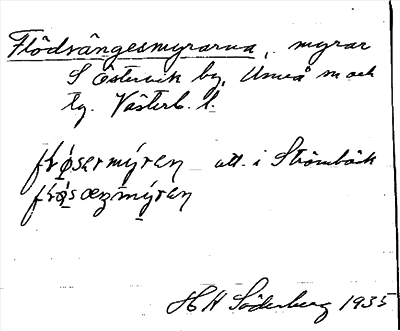 Flödsängesmyrarna, myrar
S Östervik by, Umeå m och
tg. Västerb. l.
frø̀sermýren utt. i Strömbäck
frø̀sæŋmýren
H H Söderberg 1935